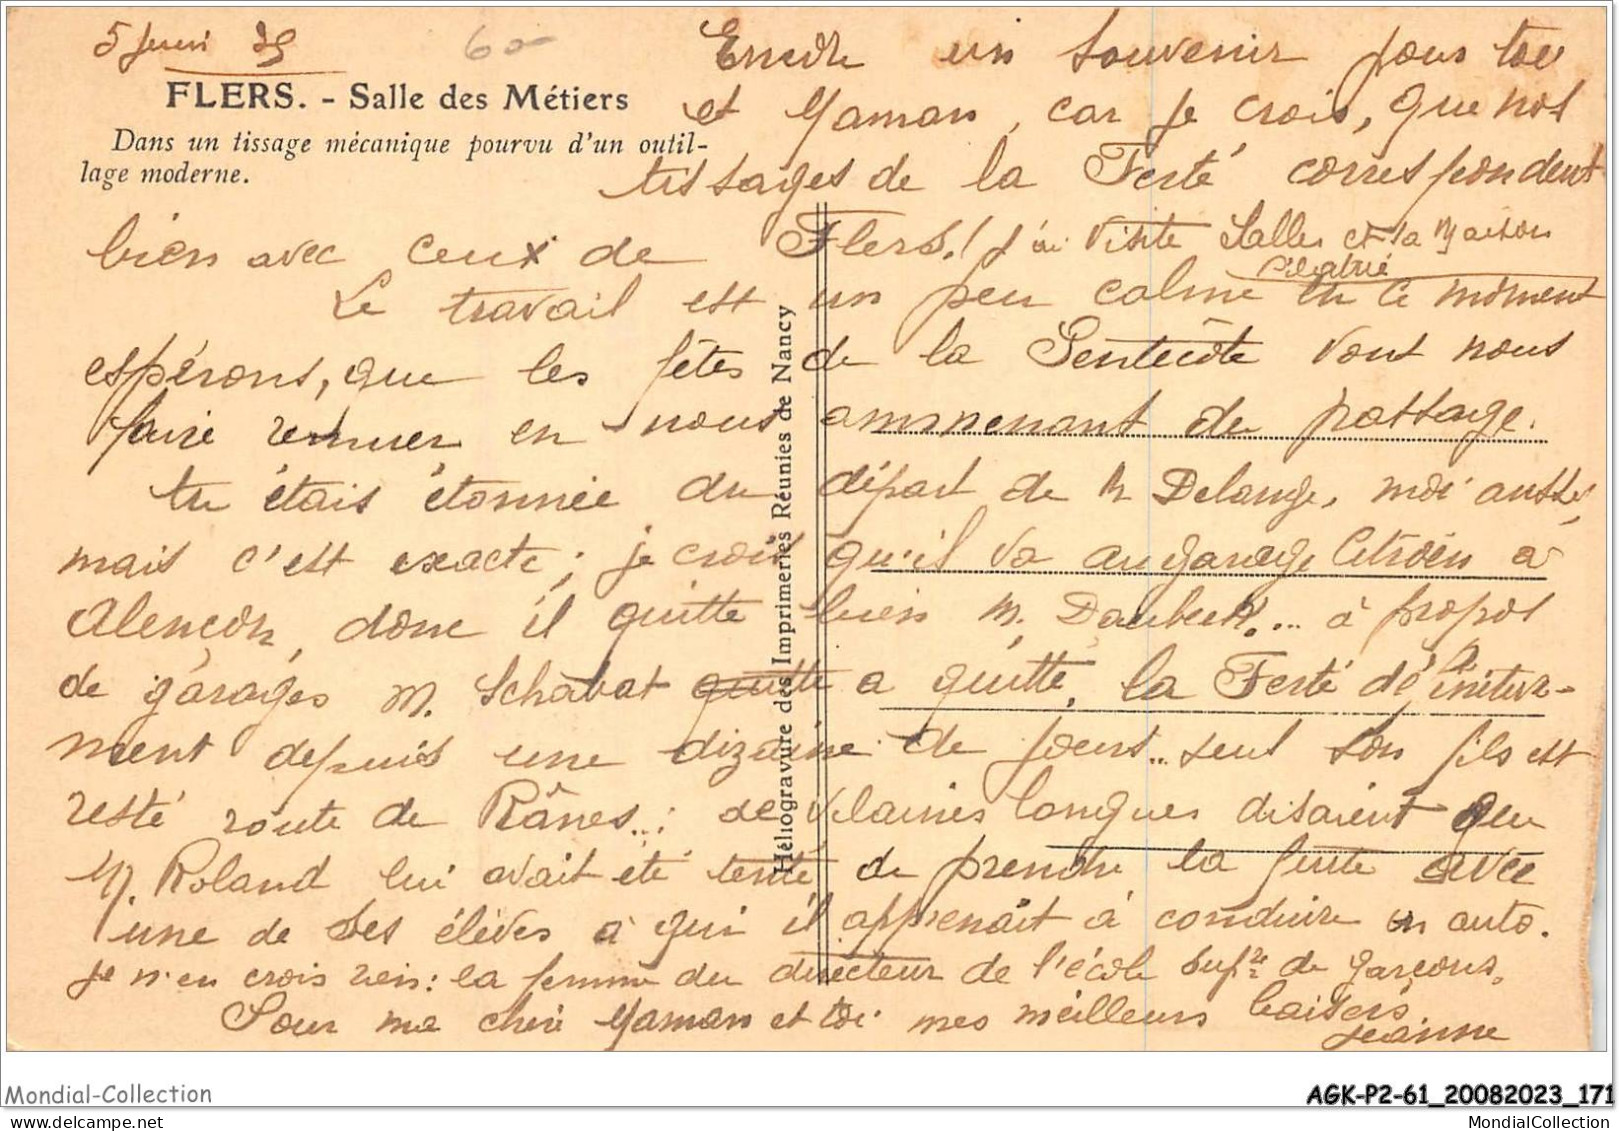 5 Juin 35
60
FLERS. - Salle des Métiers
Dans un tissage mécanique pourvu d'un outil-
lage moderne.
Héliogravure des Imprimeries Réunies de Nancy
Encore un souvenir pour toi
et Maman, car je crois, que nos
tissages de la Ferté correspondent
bien avec ceux de Flers! j'ai visité Salles et la Maison
Le travail est un peu calme en ce moment
espérons, que les fêtes de la Pentecôte vont nous
faire remuer en nous ammenant du passage.
tu étais étonnée du départ de M Delange, moi aussi,
mais c'est exacte; je crois qu'il va au garage Citroën à
Alençon, donc il quitte bien M. Daubert... à propos
de garages M. Schabat quitte a quitté, la Ferté définitive-
ment depuis une dizaine de jours.. seul son fils est
resté route de Rânes..: de vilaines langues disaient que
M. Roland lui avait été tenté de prendre la fuite avec
une de ses élèves à qui il apprenait à conduire en auto.
Je n'en crois rien: la femme du directeur de l'école Supre de garçons.
Pour ma chère Maman et toi mes meilleurs baisers
Jeanne
Mondial-Collection
AGK-P2-61_20082023_171
MondialCollection